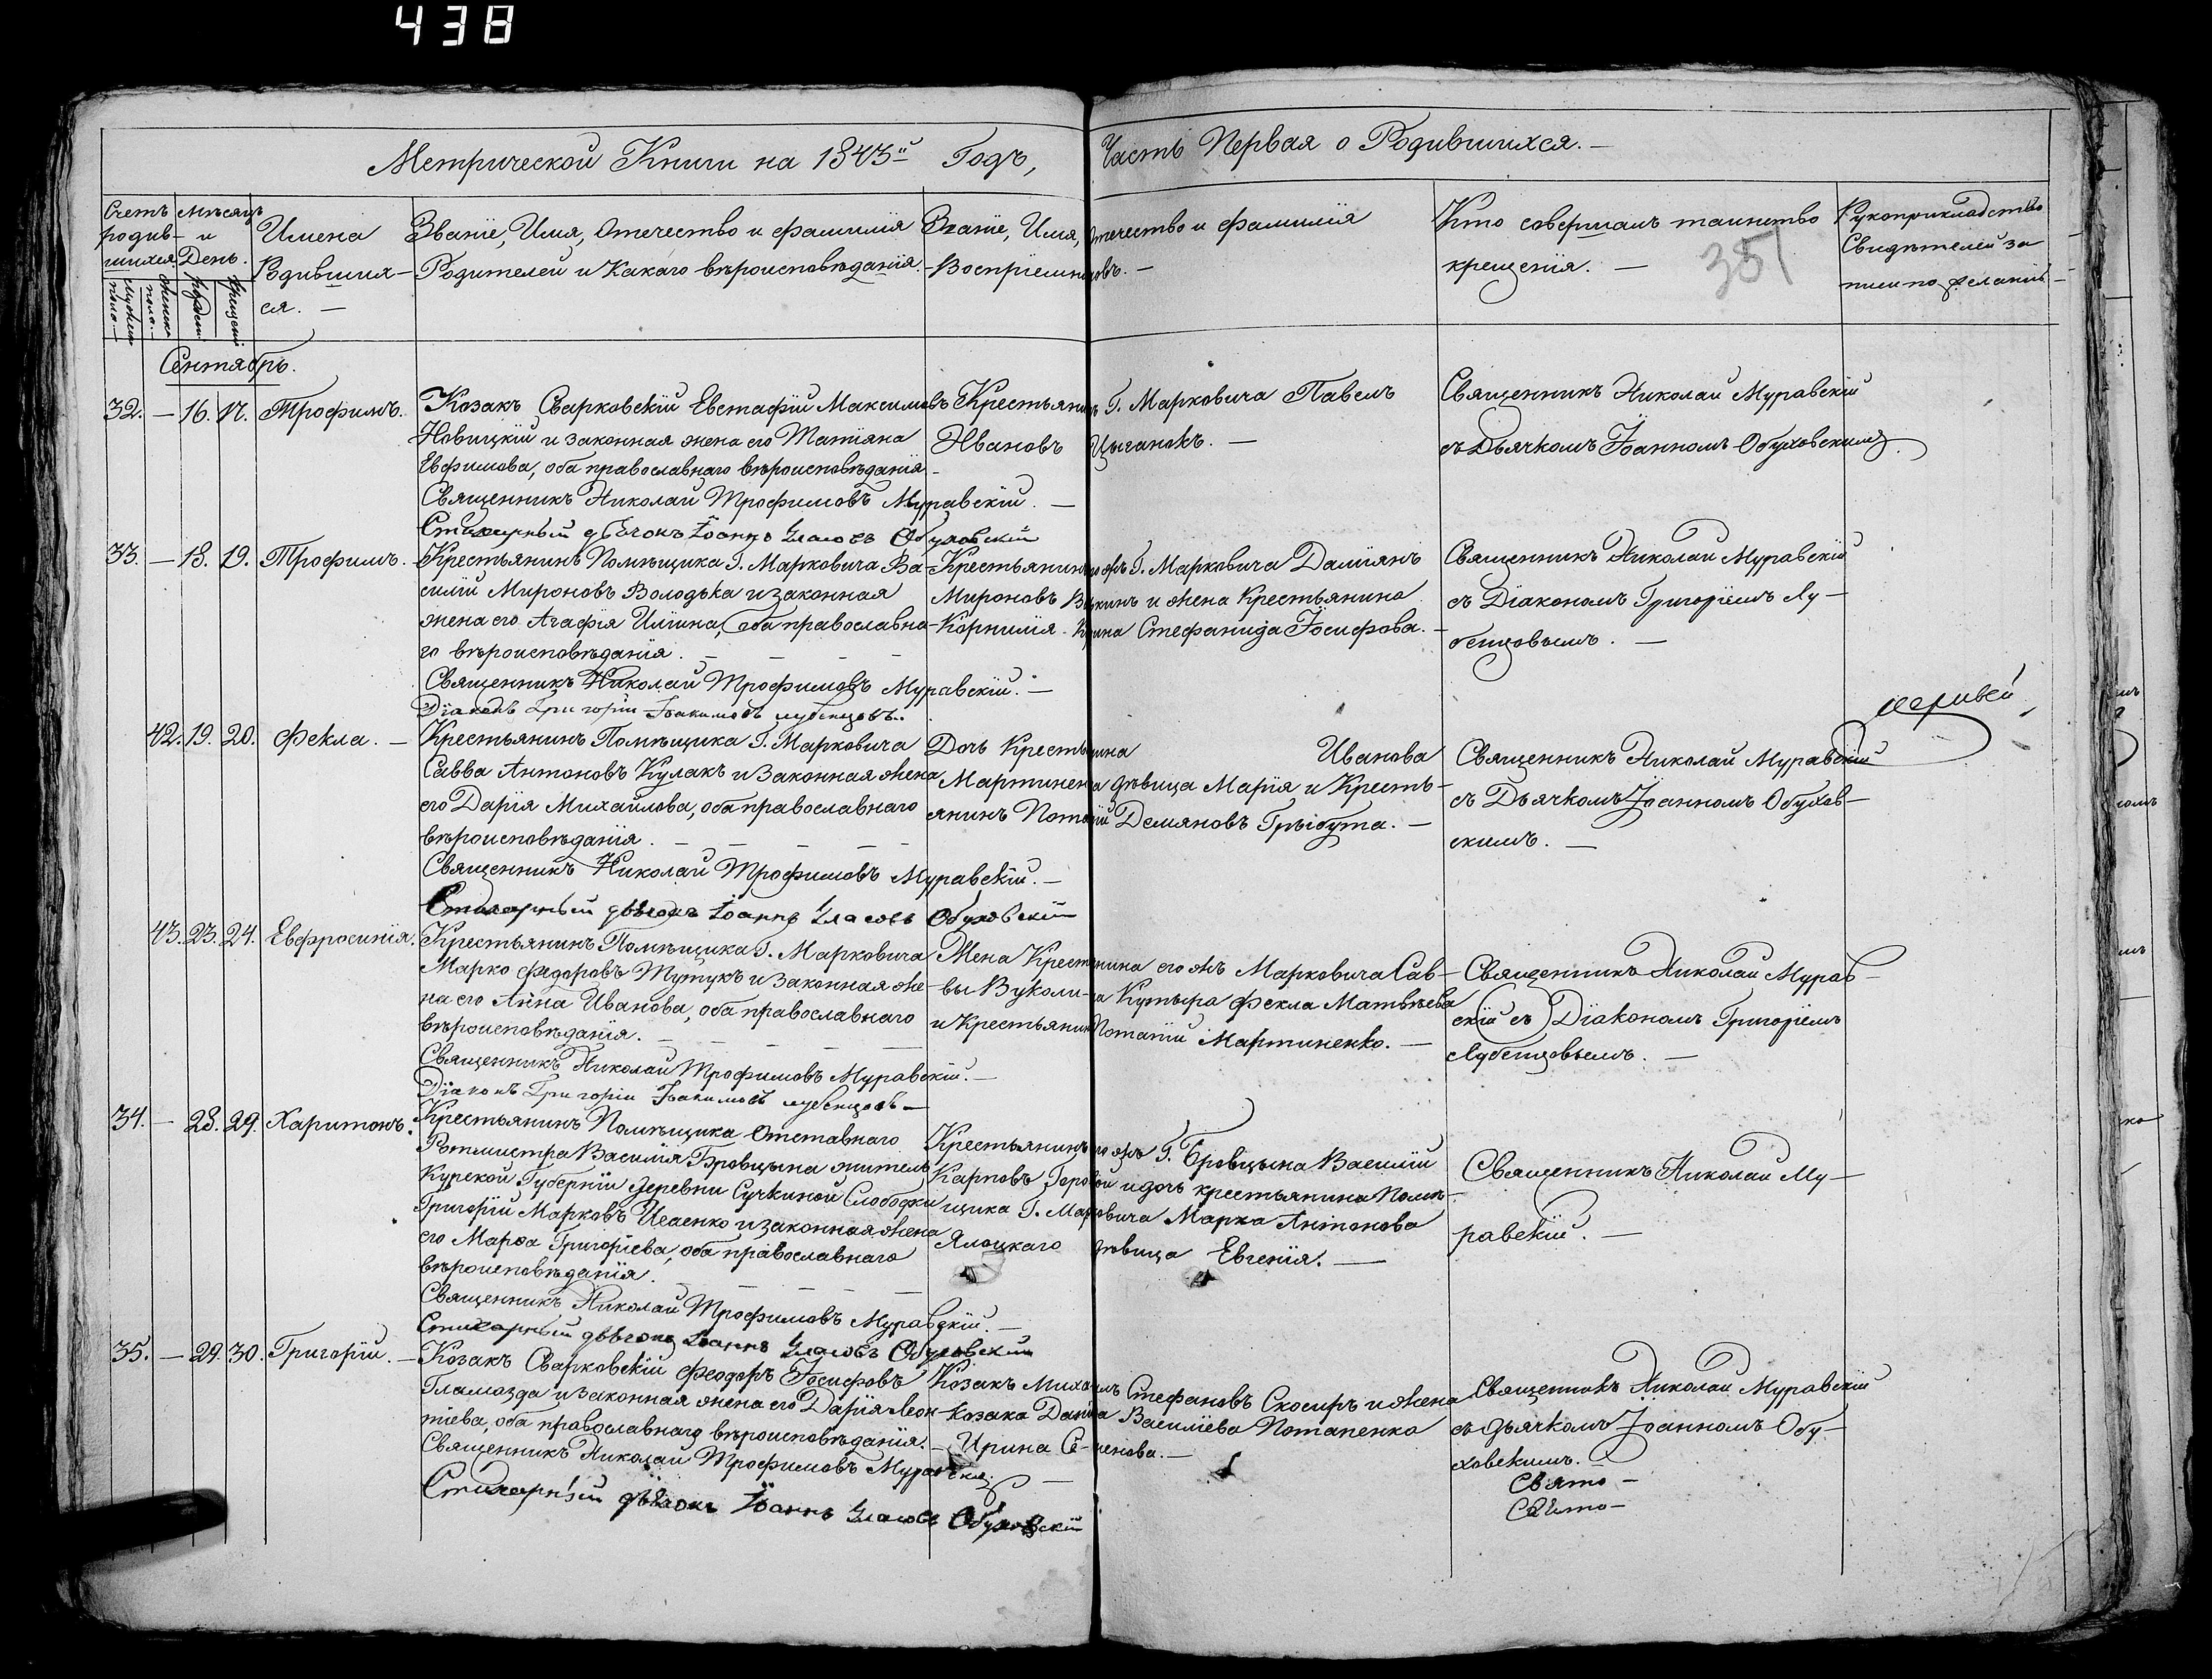 438
Метрической Книги на 1843й Годъ, Часть Первая о Родившихся. —
Счетъ родив-шихся
мужеск. пола —
женск. пола —
Мѣсяцъ и День.
рожден.
крещені
Имена Родивших-ся. —
Званіе, Имя, Отечество и фамилія
Родителей и Какаго вѣроисповѣданія.
Званіе, Имя, Отечество и фамилія
Воспріемниковъ. —
Кто совершалъ таинство
крещенія. —
351
Рукоприкладство
Свидѣтелей за
писи по желанію —
Сентябрь.
32. — 16. 17. Трофимъ.
Козакъ Сварковскій Евстафій Максимовъ
Новицкій и законная жена его Татіяна
Евфимова, оба православнаго вѣроисповѣданія
Крестьянинъ Г. Марковича Павелъ
Ивановъ Цыганокъ. —
Священникъ Николай Муравскій
съ Дьячкомъ Іоанномъ Обуховскимъ.
Священникъ Николай Трофимовъ Муравскій. —
Стихарный дьячокъ Іоаннъ Власовъ Обуховскій
33. — 18. 19. Трофимъ.
Крестьянинъ Помѣщика Г. Марковича Ва-
силій Мироновъ Володька и законная
жена его Агафія Иліина, оба православна-
го вѣроисповѣданія. —
Крестьянинъ его жъ Г. Марковича Даміянъ
Мироновъ и жена Крестьянина
Корнилія Стефанида Іосифова. —
Священникъ Николай Муравскій
съ Діакономъ Григоріемъ Лу-
бенцовымъ. —
Священникъ Николай Трофимовъ Муравскій. —
Діаконъ Григорій Іоакимовъ Лубенцовъ.
42. 19. 20. Фекла. —
Крестьянинъ Помѣщика Г. Марковича
Савва Антоновъ Кулакъ и законная жена
его Дарія Михайлова, оба православнаго
вѣроисповѣданія. —
Дочь Крестьянина Иванова
Мартиненка дѣвица Марія и Кресть-
янинъ Потапій Демяновъ Грыбута. —
Священникъ Николай Муравскій
съ Дьячкомъ Іоанномъ Обухов-
скимъ. —
Священникъ Николай Трофимовъ Муравскій. —
Стихарный дьячокъ Іоаннъ Власовъ Обуховскій
43. 23. 24. Евфросинія.
Крестьянинъ Помѣщика Г. Марковича
Марко Федоровъ Тутукъ и законная же-
на его Анна Иванова, оба православнаго
вѣроисповѣданія. —
Жена Крестьянина его жъ Марковича Сав-
вы Вуколи-на Кутыра Фекла Матвѣева
и Крестьянинъ Потапій Мартиненко. —
Священникъ Николай Мурав-
скій съ Діакономъ Григоріемъ
Лубенцовымъ. —
Священникъ Николай Трофимовъ Муравскій. —
Діаконъ Григорій Іоакимовъ Лубенцовъ —
34. — 28. 29. Харитонъ.
Крестьянинъ Помѣщика Отставнаго
Ротмистра Василія Бровцына житель
Курской Губерніи деревни Сучкиной Слободки
Григорій Марковъ Исаенко и законная жена
его Марѳа Григоріева, оба православнаго
вѣроисповѣданія. —
Крестьянинъ его жъ Г. Бровцына Василій
Карповъ Горовой и дочь крестьянина Помѣ-
щика Г. Марковича Марка Антонова
Ялоцкаго дѣвица Евгенія. —
Священникъ Николай Му-
равскій. —
Священникъ Николай Трофимовъ Муравскій. —
Стихарный дьячокъ Іоаннъ Власовъ Обуховскій
35. — 29. 30. Григорій. —
Козакъ Сварковскій Феодоръ Іосифовъ
Гламазда и законная жена его Дарія Леон-
тіева, оба православнаго вѣроисповѣданія. —
Козакъ Михаилъ Стефановъ Скосыръ и жена
козака Данила Василіева Потапенка
Ирина Се-менова. —
Священникъ Николай Муравскій
съ дьячкомъ Іоанномъ Обу-
ховскимъ. —
Священникъ Николай Трофимовъ Муравскій. —
Стихарный дьячокъ Іоаннъ Власовъ Обуховскій
Свято —